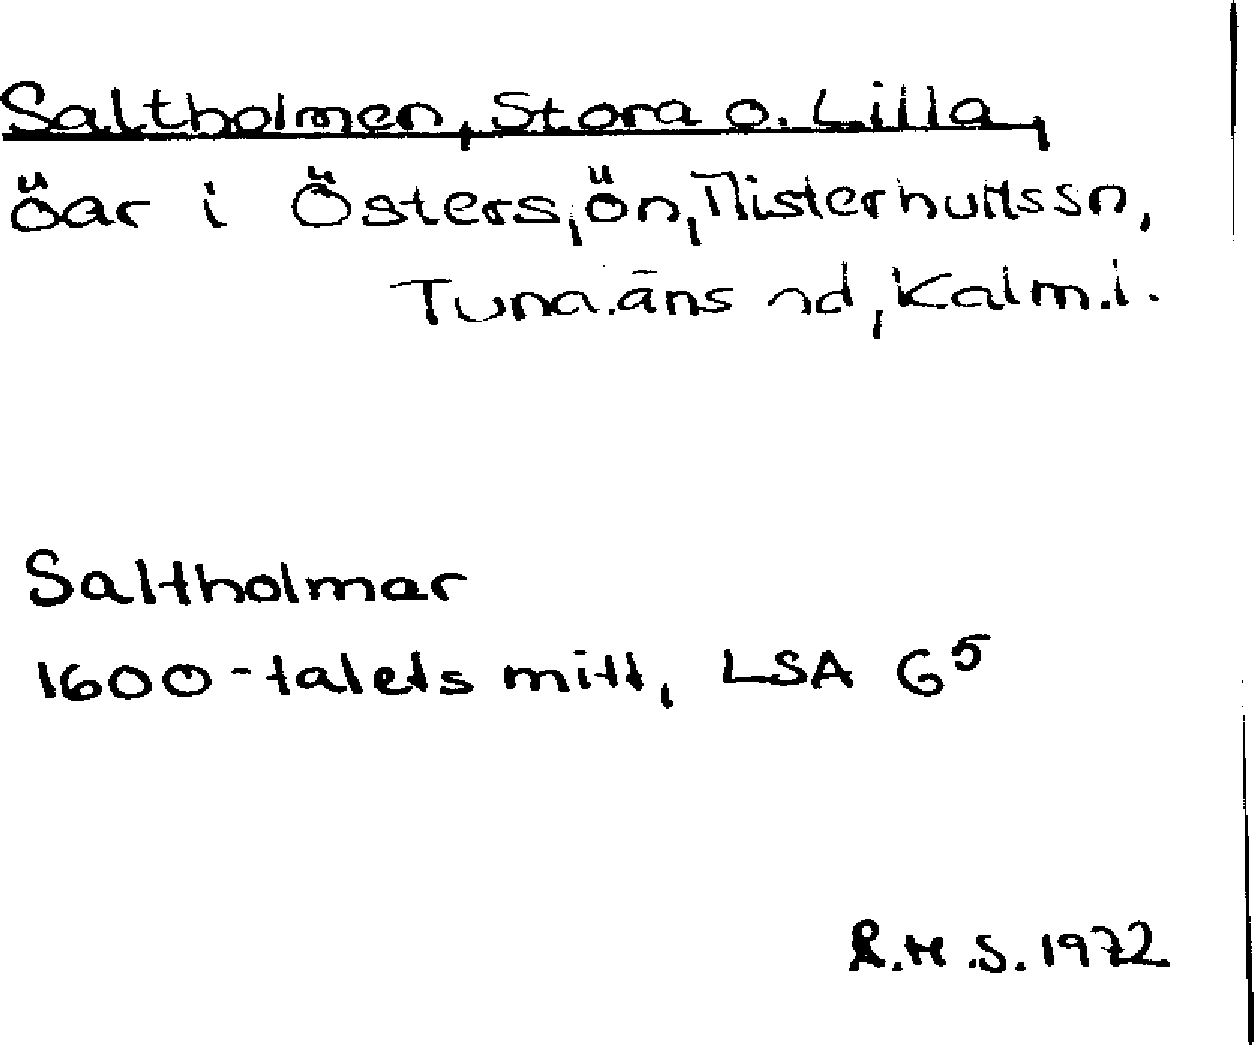 Saltholmen, Stora o. Lilla,
öar i Östersjön, Misterhults sn,
Tunaläns hd, Kalm.l.
Saltholmar
1600-talets mitt, LSA G5
R.H.S. 1972